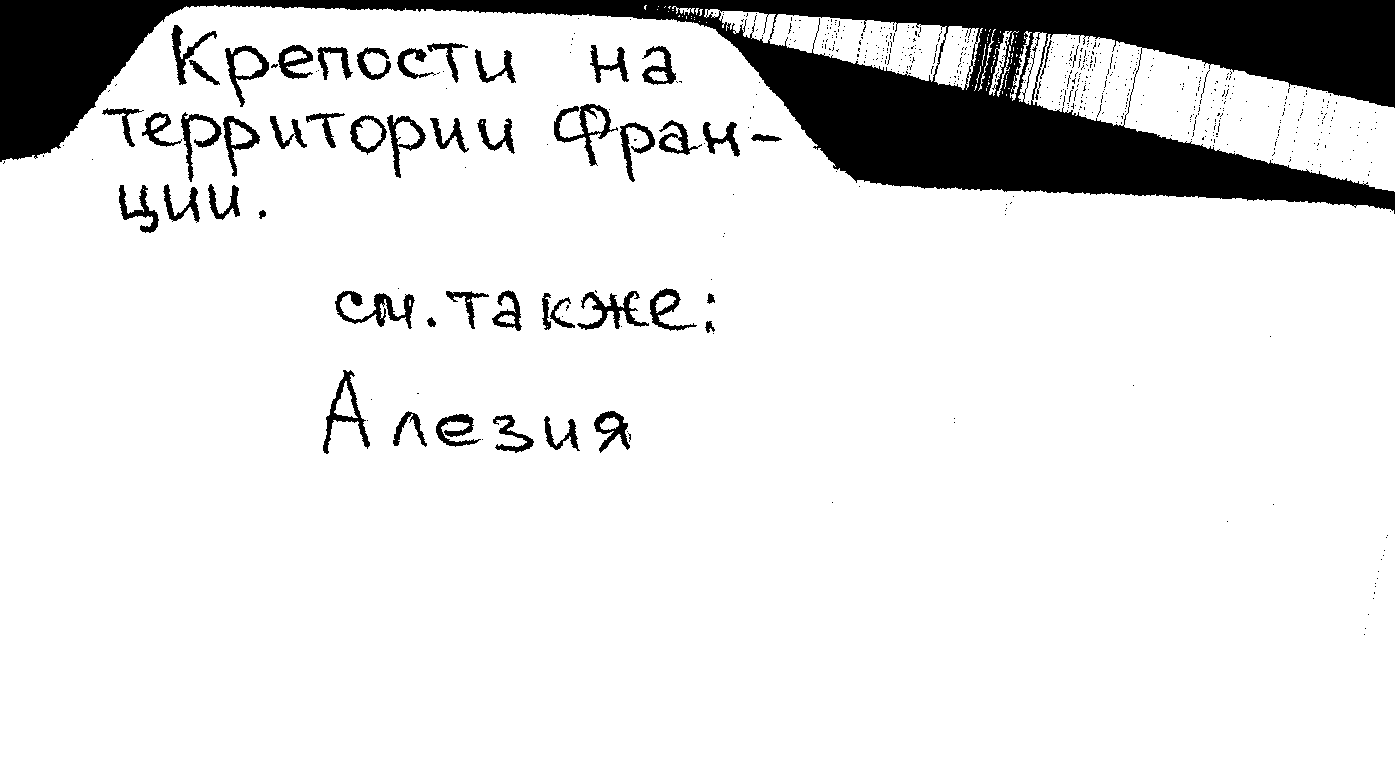 Крепости на
территории Фран-
ции.
см. также:
Алезия